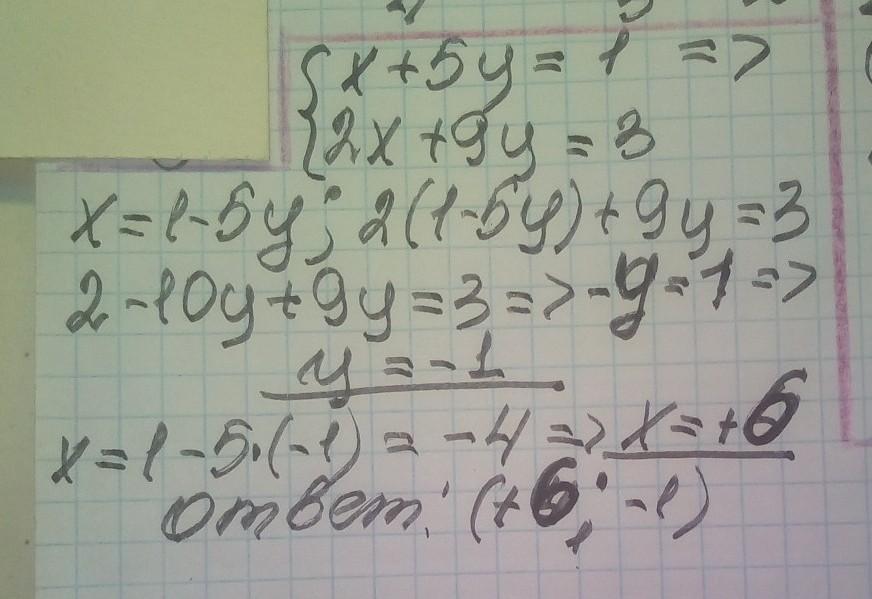 {x+5y=1 =>
{2x+9y=3
x=1-5y; 2(1-5y)+9y=3
2-10y+9y=3=>-y=1=>
y=-1
x=1-5·(-1)=-4=>x=+6
Ответ: (+6; -1)